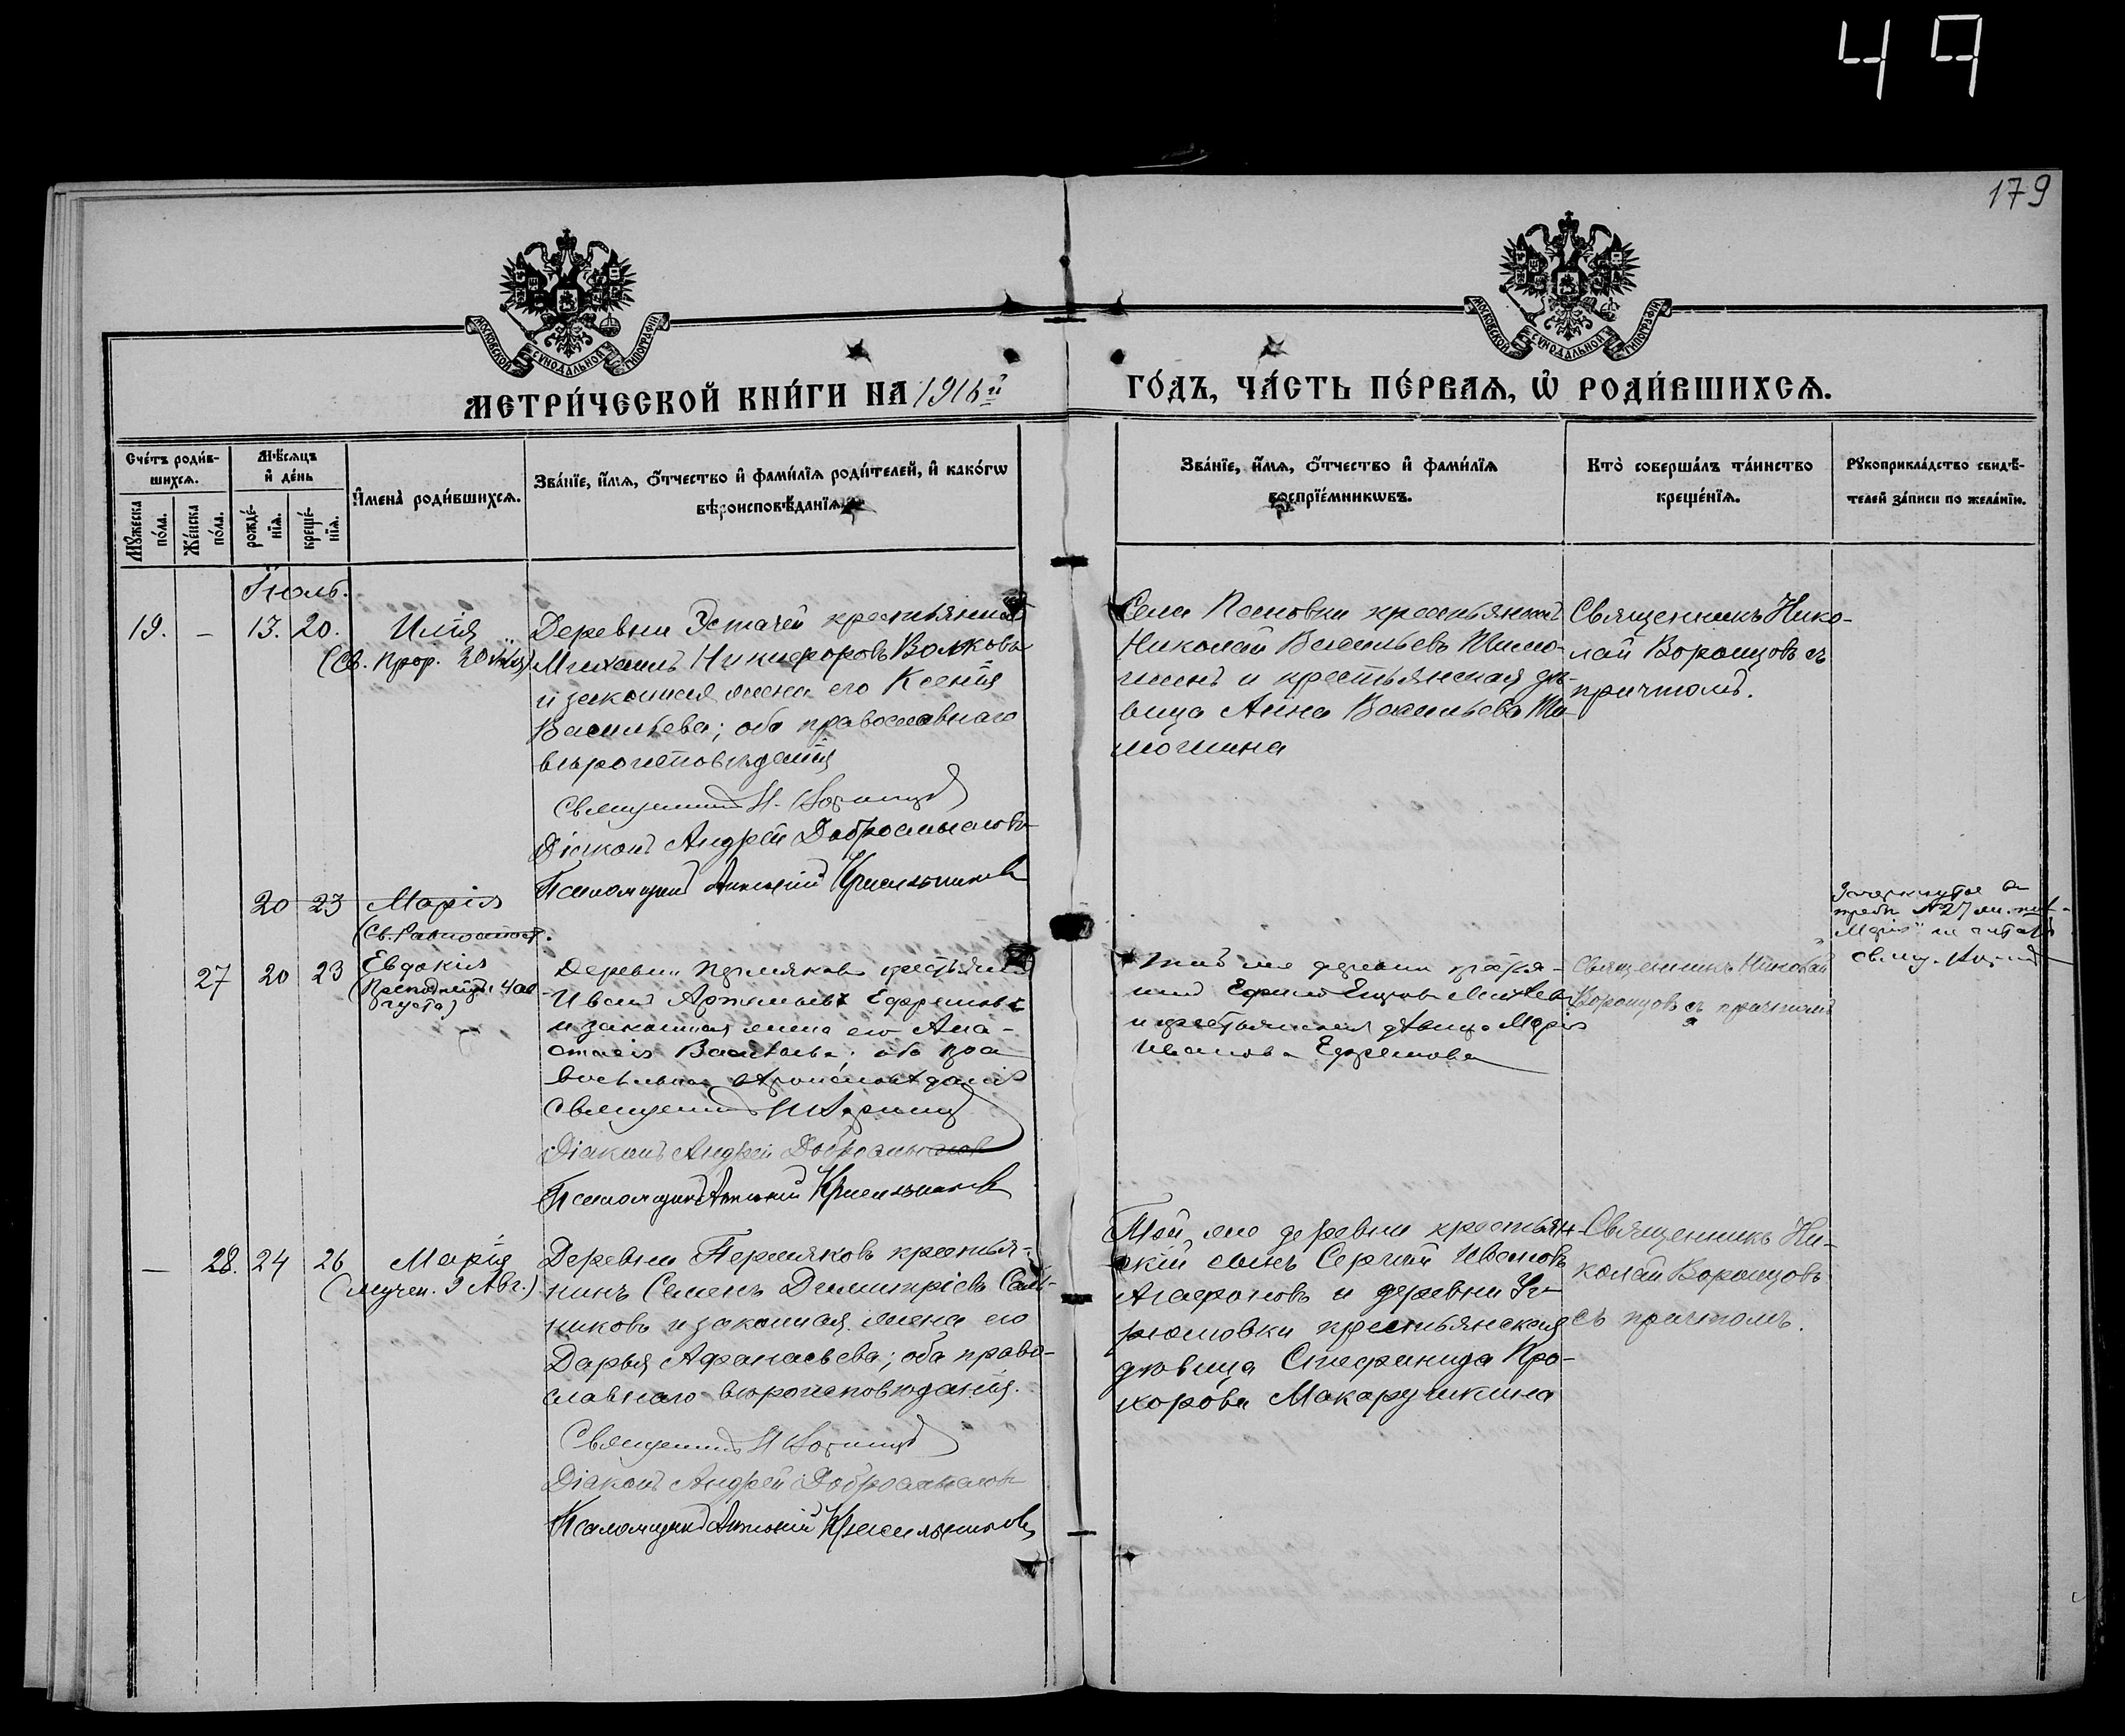 49
179
МОСКОВСКОЙ СѴНОДАЛЬНОЙ ТИПОГРАФІИ
МОСКОВСКОЙ СѴНОДАЛЬНОЙ ТИПОГРАФІИ
МЕТРИ́ЧЕСКОЙ КНИ́ГИ НА 1916й
ГО́ДЪ, ЧА́СТЬ ПЕ́РВАѦ, Ѡ҆ РОДИ́ВШИХСѦ.
Сче́тъ роди́в-
шихсѧ.
Мѣ́сѧцъ
и҆ де́нь
И҆мена̀ роди́вшихсѧ.
Зва́нїе, и҆́мѧ, ѻ҆́тчество и҆ фами́лїѧ роди́телей, и҆ како́гѡ
вѣроисповѣ́данїѧ.
Мꙋ́жеска
по́ла.
Же́нска
по́ла.
рожде́-
нїѧ.
креще́-
нїѧ.
Зва́нїе, и҆́мѧ, ѻ҆́тчество и҆ фами́лїѧ
воспрїе́мникѡвъ.
Кто̀ соверша́лъ та́инство
креще́нїѧ.
Рꙋкоприкла́дство свидѣ́-
телей за́писи по жела́нїю.
Іюль.
19. – 13. 20. Илія
(Св. прор. 20 Іюля)
Деревни Эстачей крестьянинъ
Михаилъ Никифоровъ Волковъ
и законная жена его Ксенія
Васильева; оба православнаго
вѣроисповѣданія
Священникъ Н. Воронцовъ
Діаконъ Андрей Добросмысловъ
Псаломщикъ Антоній Красильниковъ
Села Песковки крестьянинъ
Николай Васильевъ Тимо-
шинъ и крестьянская дѣ-
вица Анна Васильева Ти-
мошина
Священникъ Нико-
лай Воронцовъ съ
причтомъ.
20 23 Марія
(Св. Равноапост.
Зачеркнутое
№ 27
"Марія" не читать
Свящ.
27 20 23 Евдокія
(Преподобн. 4 Ав-
густа)
Деревни Пермяковъ крестьянинъ
Иванъ Артемьевъ Ефремовъ
и законная жена его Ана-
стасія Васильева; оба пра-
вославнаго вѣроисповѣданія
Священникъ Н. Воронцовъ
Діаконъ Андрей Добросмысловъ
Псаломщикъ Антоній Красильниковъ
Той же деревни крестья-
нинъ Ефимъ
и крестьянская дѣвица Марія
Иванова Ефремова
Священникъ Николай
Воронцовъ съ причтомъ
– 28. 24 26 Марія
(мучен. 9 Авг.)
Деревни Пермяковъ крестья-
нинъ Семенъ Димитріевъ Саль-
никовъ и законная жена его
Дарья Афанасьева; оба право-
славнаго вѣроисповѣданія.
Священникъ Н. Воронцовъ
Діаконъ Андрей Добросмысловъ
Псаломщикъ Антоній Красильниковъ
Той же деревни крестьян-
скій сынъ Сергѣй Ивановъ
Агафоновъ и деревни Уг-
рюмовки крестьянская
дѣвица Стефанида Про-
хорова Макарушкина
Священникъ Ни-
колай Воронцовъ
съ причтомъ.